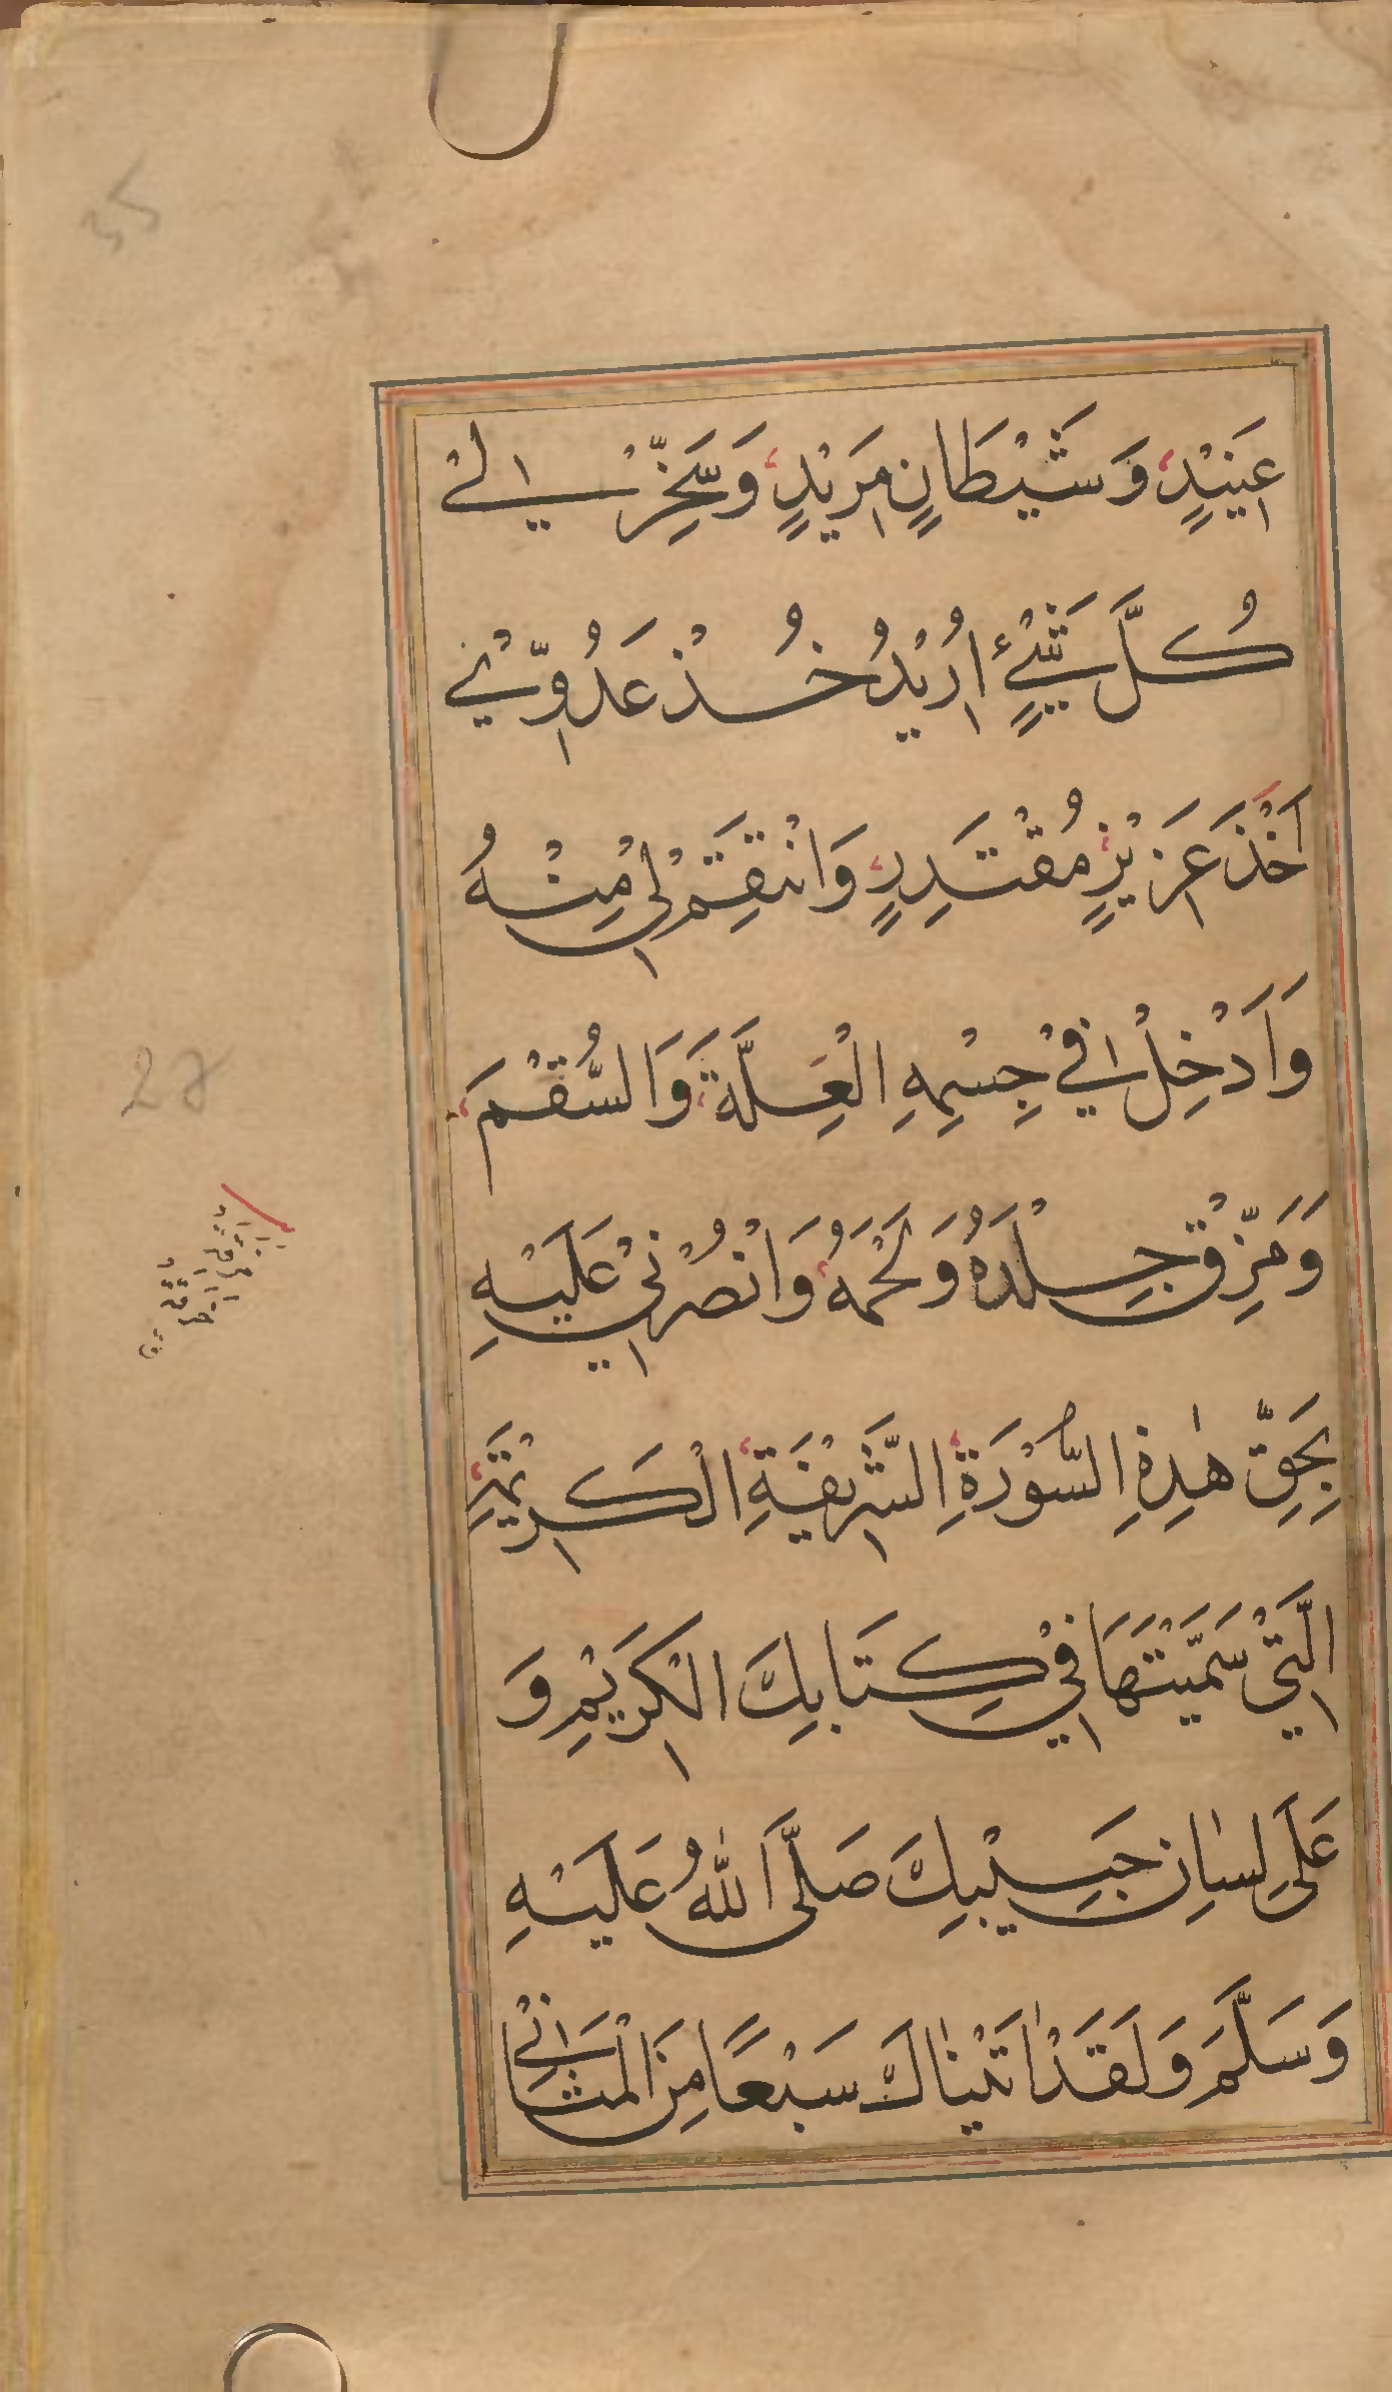 عَنِيْدٍ وَ شَيْطَانٍ مَرِيْدٍ وَسَخِّرْ لِيْ
كُلَّ شَيْئٍ اُرِيْدُ خُذْ عَدُوِّيْ
اَخْذَ عَزِيْزٍ مُقْتَدِرٍ وَانْتَقِمْ لِيْ مِنْهُ
وَاَدْخِلْ فِيْ جِسْمِهِ الْعِلَّةَ وَالسُّقْمَ
وَمَزِّقْ جِلْدَهُ وَلَحْمَهُ وَانْصُرْنِيْ عَلَيْهِ
بِحَقِّ هٰذِهِ السُّوْرَةِ الشَّرِيْفَةِ الْكَرِيْمَةِ
الَّتِيْ سَمَّيْتَهَا فِيْ كِتَابِكَ الْكَرِيْمِ وَ
عَلَى لِسَانِ حَبِيْبِكَ صَلَّى اللّٰهُ عَلَيْهِ
وَسَلَّمَ وَلَقَدْ اٰتَيْنَاكَ سَبْعًا مِنَ الْمَثَانِيْ
35
28